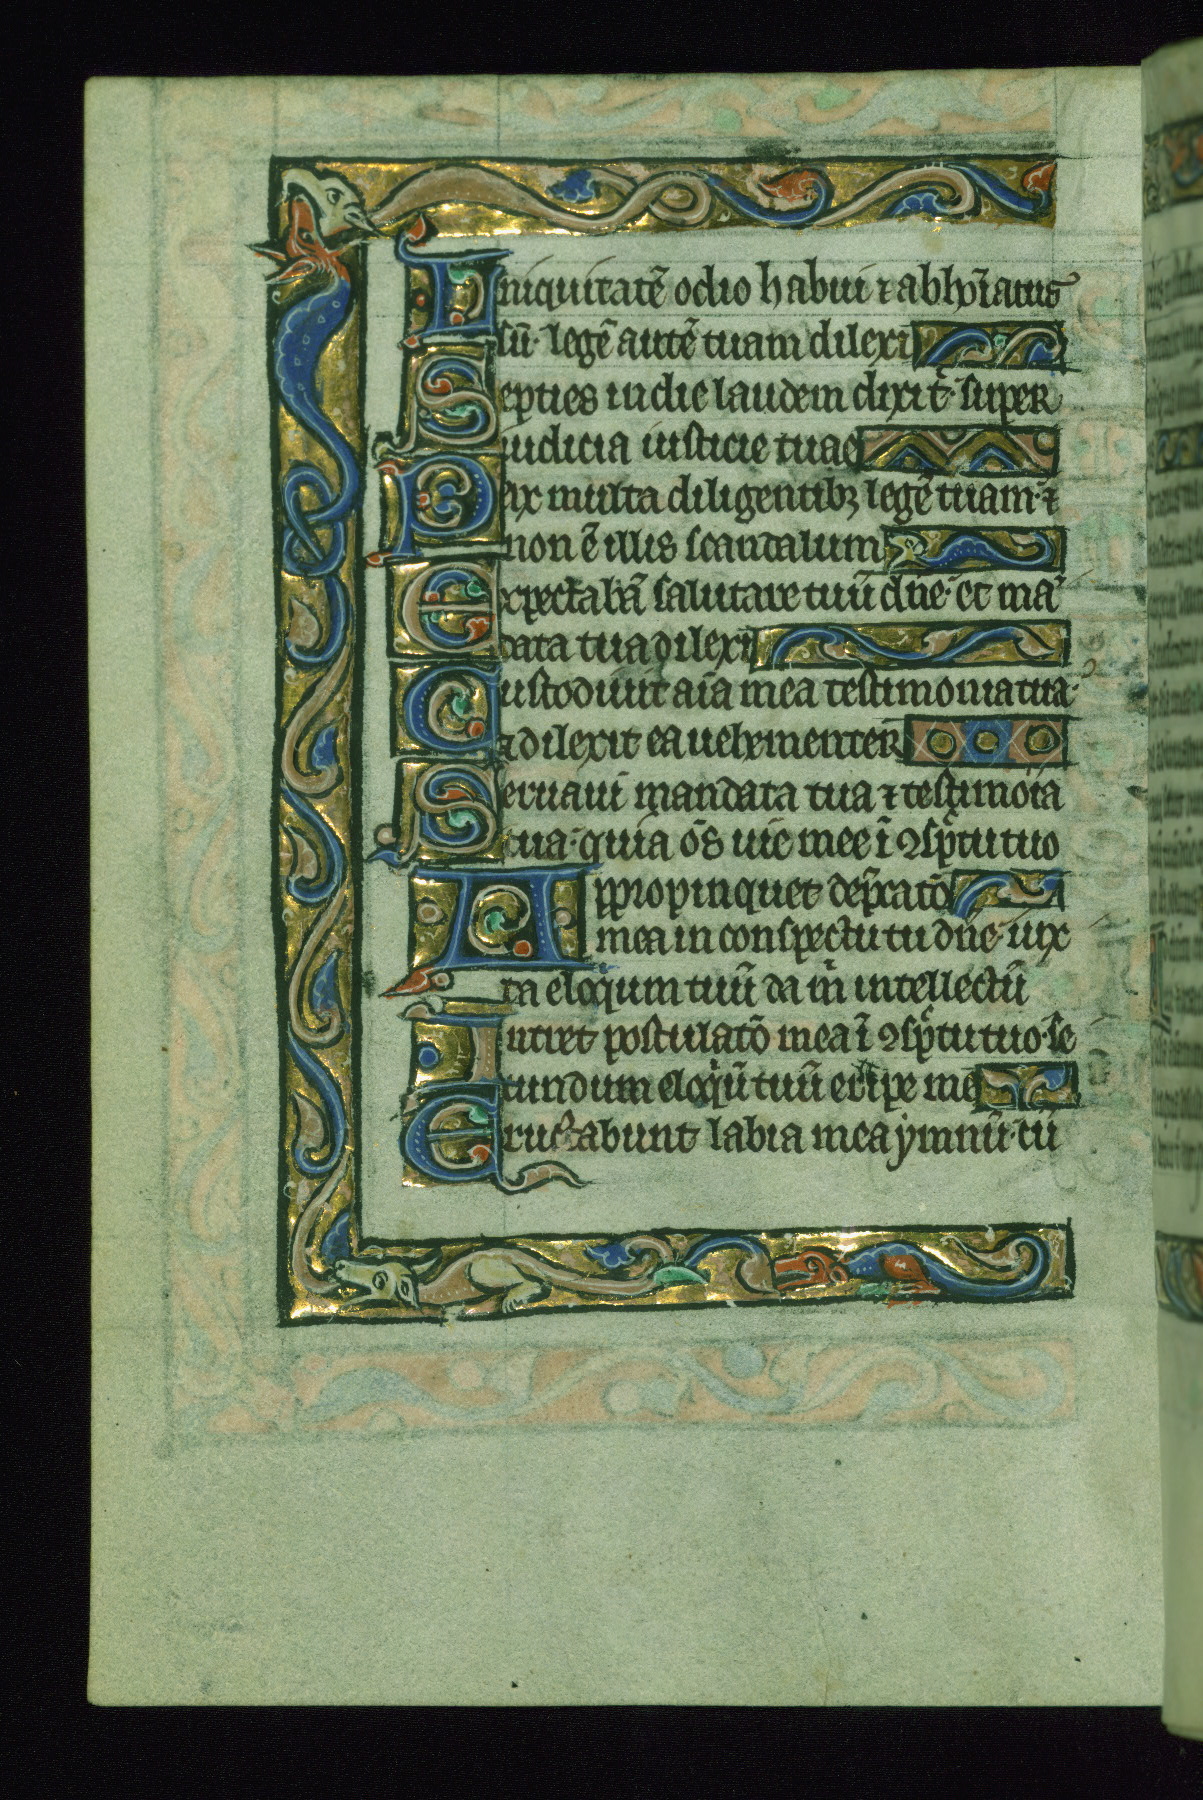 Iniquitatē odio habui ⁊ abhoīatus
sū· legē autē tuam dilexi
Septies in die laudem dixi t̄· super
iudicia iusticie tuae
Pax multa diligentibꝫ legē tuam· ⁊
non ē illis scandalum
Expectabā salutare tuū dn̄e· et mā
data tua dilexi
Custodiuit aīa mea testimonia tua·
⁊ dilexit ea uehementer
Seruaui mandata tua ⁊ testimōia
tua· quia om̄s uie mee ī ꝯsp̄ctu tuo
Appropinquet dep̄catō
mea in conspectu tu dn̄e· iux
ta eloqium tuū da m̄ intellectū
Intret postulatō mea ī ꝯsp̄ctu tuo· se
cundum eloqiū tuū eripe me
Eructabunt labia mea ymnū· cū